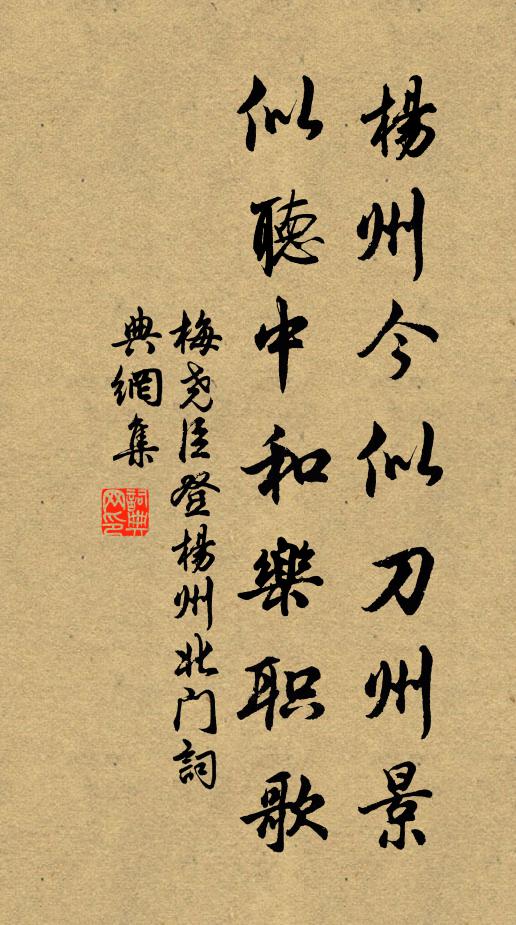 楊州今似刀州景
似聽中和樂職歌
梅堯臣登楊州北门詞
典網集
詞典
网印